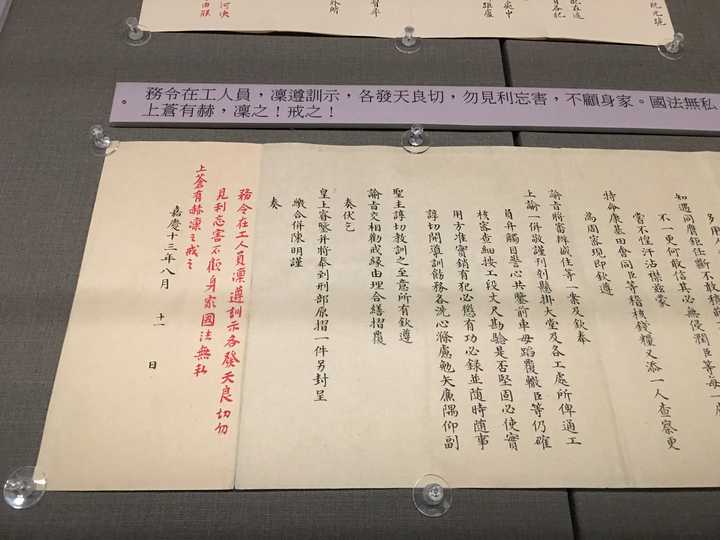 務令在工人員，凜遵訓示，各發天良切，勿見利忘害，不顧身家。國法無私、
。上蒼有赫，凜之！戒之！
知遇同膺鉅任斷不敢稍
不一更何敢信其必無侵潤臣等每一
當不惶汗沾襟茲蒙
特命康基田會同臣等稽核錢糧又添一人查察更
為周密現即欽遵
諭旨將審辦戚住等一案及欽奉
上諭一併敬謹刊刻懸掛大堂及各工處所俾通工
員弁觸目警心共鑒前車毋蹈覆轍臣等仍確
核審查細按工段丈尺勘驗是否堅固必使實
用方准實銷有犯必懲有功必錄並隨時隨事
諄切開導訓飭務各洗心滌慮勉矢廉隅仰副
聖主諄切教訓之至意所有欽遵
諭旨交相勸戒緣由理合繕摺覆
奏伏乞
皇上睿鑒并將奉到刑部原摺一件另封呈
繳合併陳明謹
奏
務令在工人員凜遵訓示各發天良切勿
見利忘害不顧身家國法無私
上蒼有赫凜之戒之
嘉慶十三年八月 十一 日